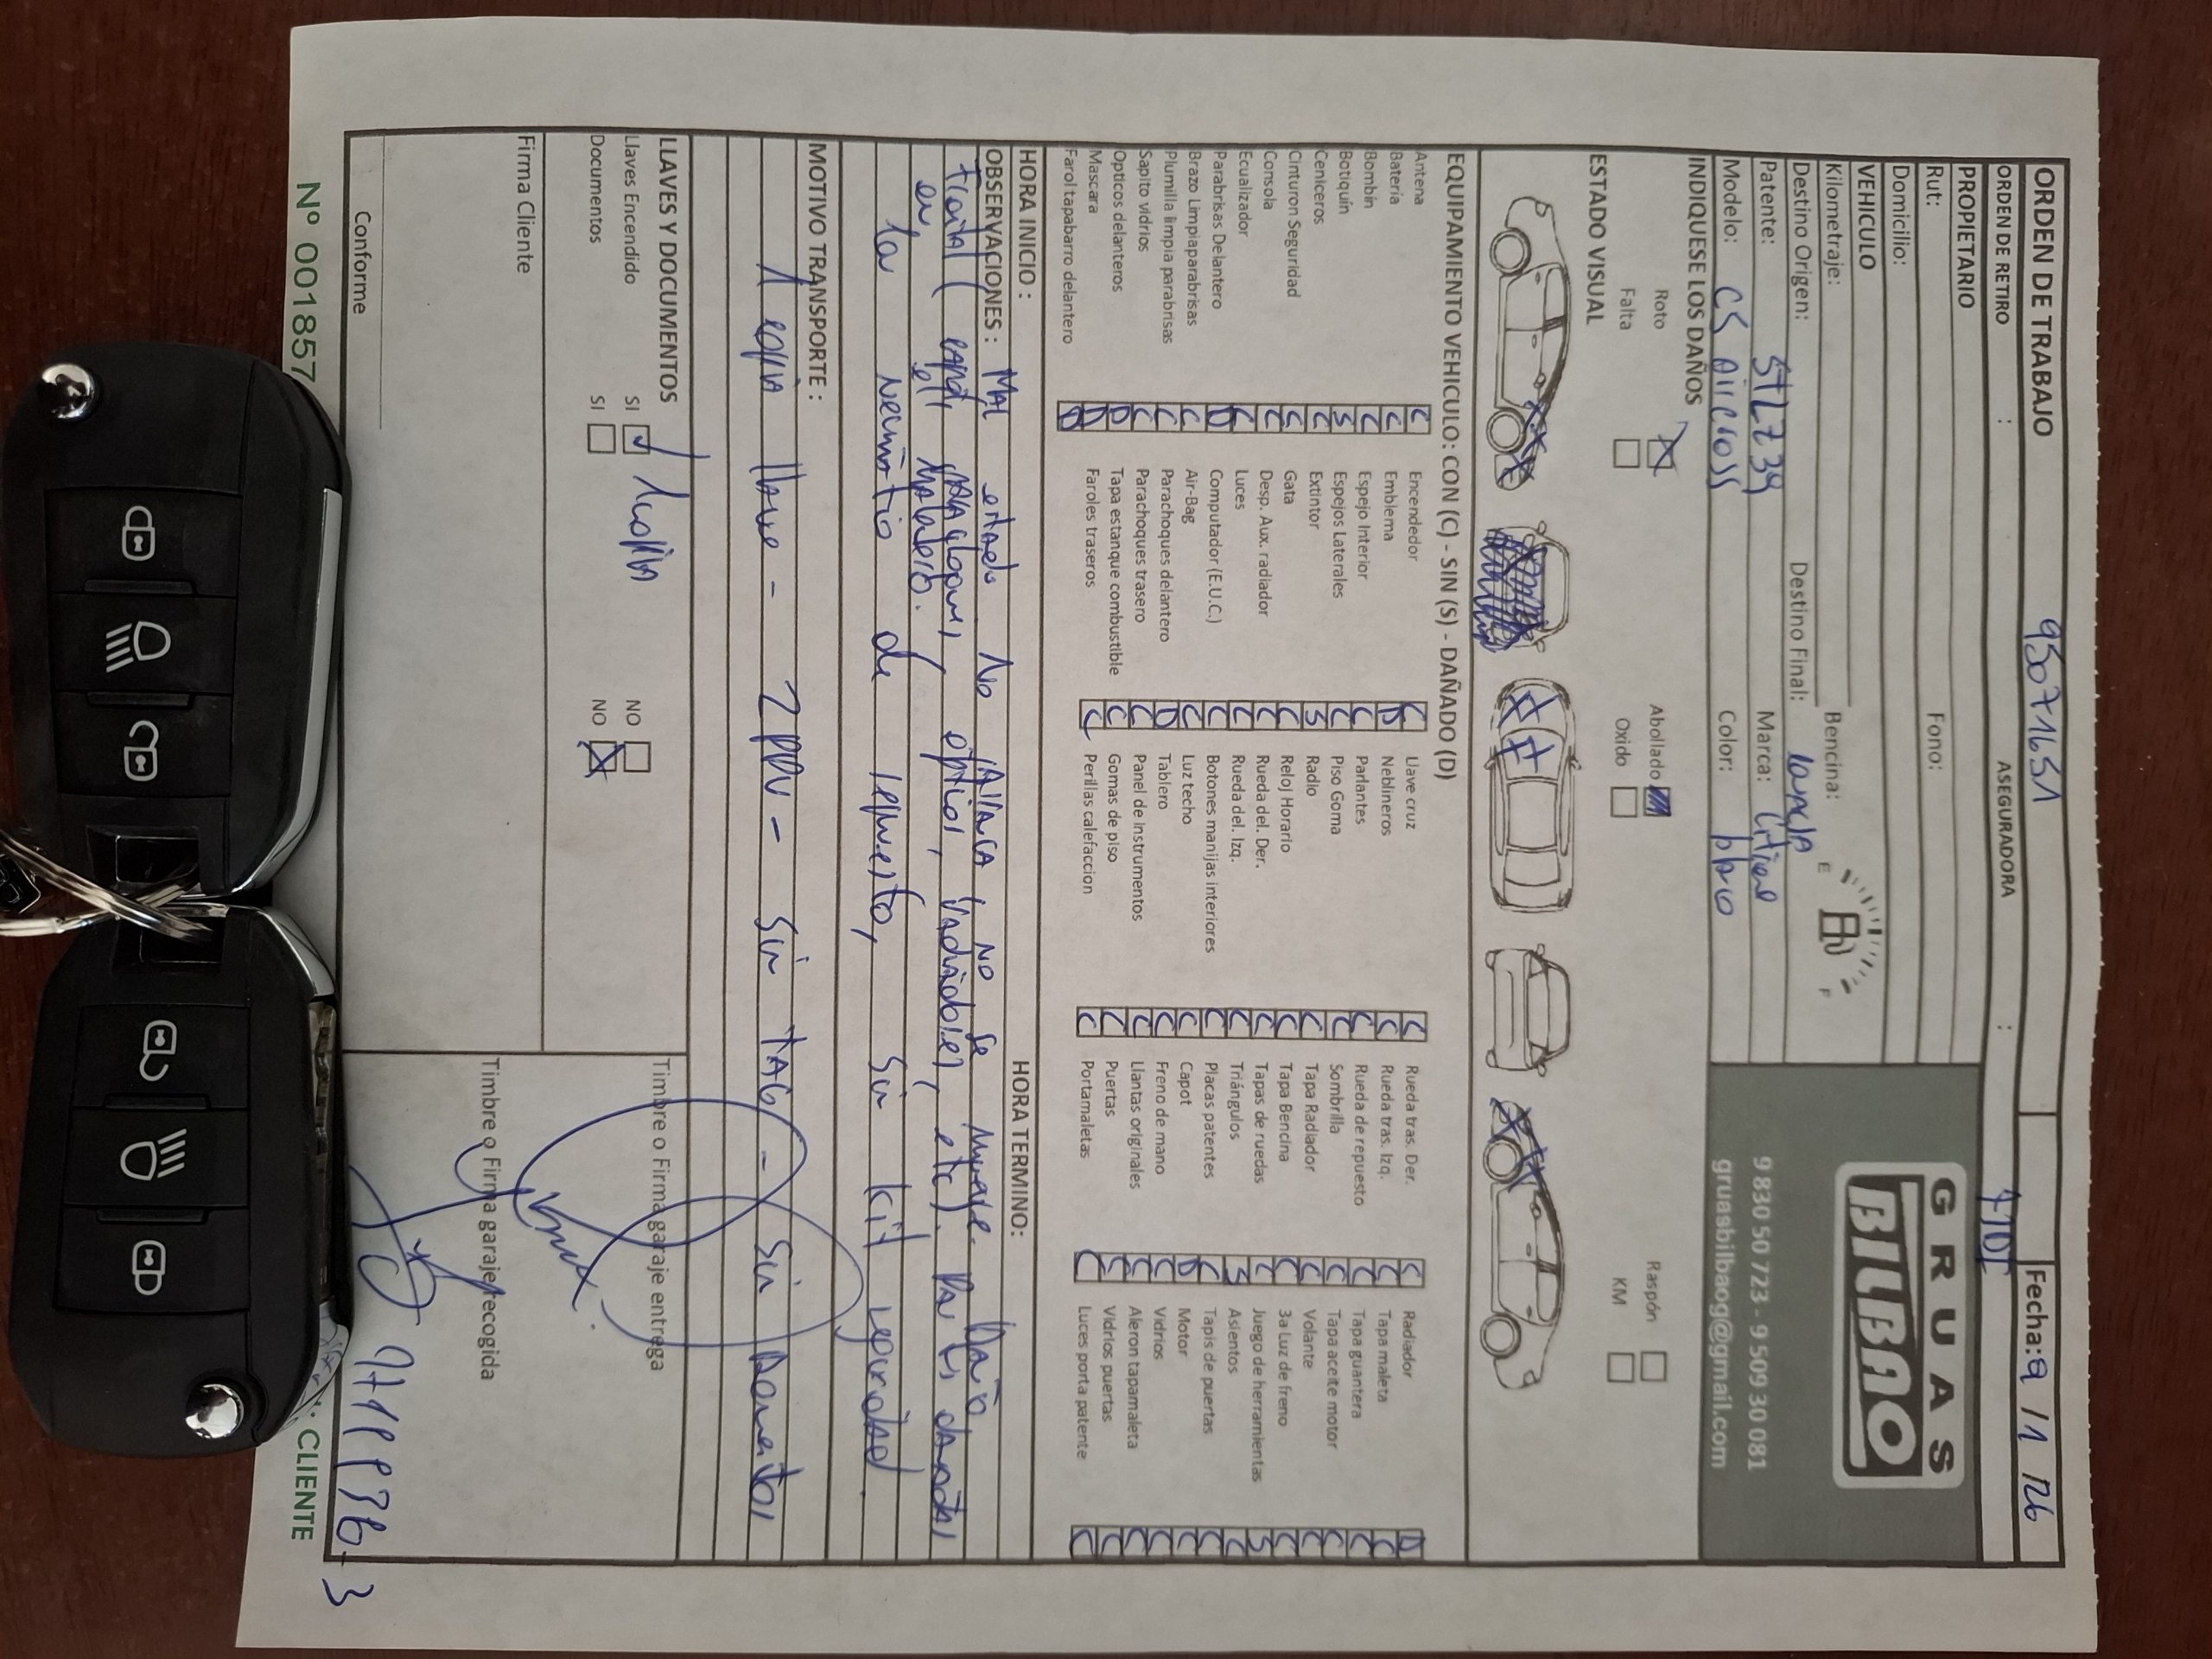 ORDEN DE TRABAJO 93071631 Fecha: 9 / 1 / 26
ORDEN DE RETIRO : ASEGURADORA :
PROPIETARIO
Rut: Fono:
Domicilio:
VEHICULO
Kilometraje: Bencina: E F
Destino Origen: Destino Final: lampa
Patente: STLZ39 Marca:
Modelo: C5 Aircross Color:
GRUAS
BILBAO
9 830 50 723 - 9 509 30 081
gruasbilbaog@gmail.com
INDIQUESE LOS DAÑOS
Roto Abollado Raspón
Falta Oxido KM
ESTADO VISUAL
EQUIPAMIENTO VEHICULO: CON (C) - SIN (S) - DAÑADO (D)
Antena C
Batería C
Bombin C
Botiquin S
Ceniceros C
Cinturon Seguridad C
Consola C
Ecualizador C
Parabrisas Delantero D
Brazo Limpiaparabrisas C
Plumilla limpia parabrisas C
Sapito vidrios C
Opticos delanteros D
Mascara D
Farol tapabarro delantero D
Encendedor C
Emblema D
Espejo Interior C
Espejos Laterales C
Extintor S
Gata C
Desp. Aux. radiador C
Luces C
Computador (E.U.C.) C
Air-Bag C
Parachoques delantero D
Parachoques trasero C
Tapa estanque combustible C
Faroles traseros C
Llave cruz C
Neblineros C
Parlantes C
Piso Goma C
Radio C
Reloj Horario C
Rueda del. Der. C
Rueda del. Izq. C
Botones manijas interiores C
Luz techo C
Tablero C
Panel de instrumentos C
Gomas de piso C
Perillas calefaccion C
Rueda tras. Der. C
Rueda tras. Izq. C
Rueda de repuesto C
Sombrilla C
Tapa Radiador C
Tapa Bencina C
Tapas de ruedas C
Triángulos S
Placas patentes C
Capot D
Freno de mano C
Llantas originales C
Puertas C
Portamaletas C
Radiador D
Tapa maleta C
Tapa guantera C
Tapa aceite motor C
Volante C
3a Luz de freno C
Juego de herramientas S
Asientos C
Tapis de puertas C
Motor C
Vidrios C
Aleron tapamaleta C
Vidrios puertas C
Luces porta patente C
HORA INICIO : HORA TERMINO:
OBSERVACIONES : Mal estado No Arranca, no se mueve. Daño
frontal ( capot, parachoques, opticos, etc).
en el
la de repuesto, sin kit seguridad
MOTIVO TRANSPORTE :
1 copia llave - 2 PPU - Sin TAG - Sin Documentos
LLAVES Y DOCUMENTOS
Llaves Encendido SI NO 1 copia
Documentos SI NO
Timbre o Firma garaje entrega
Firma Cliente
Timbre o Firma garaje recogida
Conforme
Nº 001857
CLIENTE